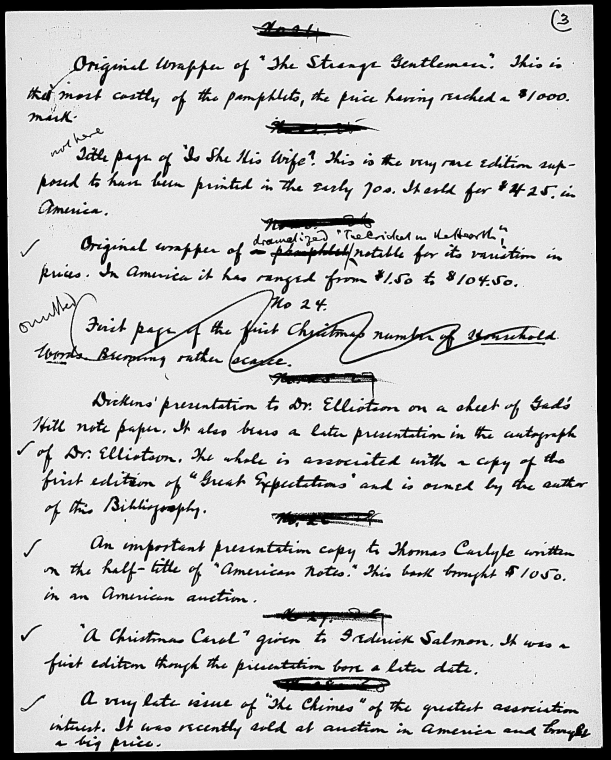 (3
Original Wrapper of "The Strange Gentleman". This is
the most costly of the pamphlets, the price having reached a $1000.
mark.
not here
Title page of "Is She His Wife?". This is the very rare edition sup-
posed to have been printed in the early 70s. It sold for $425. in
America.
dramatized "The Cricket on the Hearth",
Original wrapper of a pamphlet notable for its variation in
prices. In America it has ranged from $1.50 to $104.50.
No 24.
omitted
First page of the first Christmas number of Household
Words. Becoming rather scarce.
Dickens' presentation to Dr. Elliotson on a sheet of Gad's
Hill note paper. It also bears a later presentation in the autograph
of Dr. Elliotson. The whole is associated with a copy of the
first edition of "Great Expectations" and is owned by the author
of this Bibliography.
An important presentation copy to Thomas Carlyle written
on the half-title of "American Notes." This book brought $1050.
in an American auction.
"A Christmas Carol" given to Frederick Salmon. It was a
first edition though the presentation bore a later date.
A very late issue of "The Chimes" of the greatest association
interest. It was recently sold at auction in America and brought
a big price.